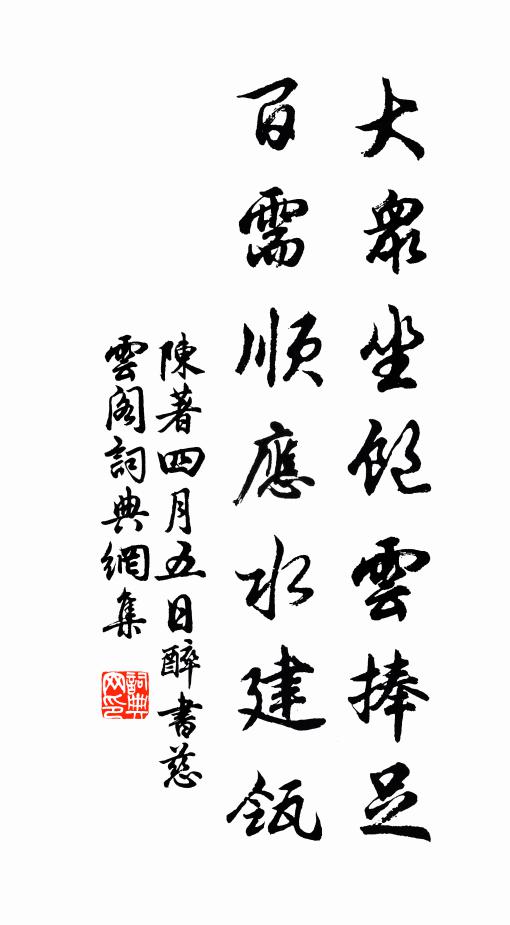 大眾坐飽雲捧足
百需順應水建瓴
陳著四月五日醉書慈
雲閣詞典網集
詞典
网印